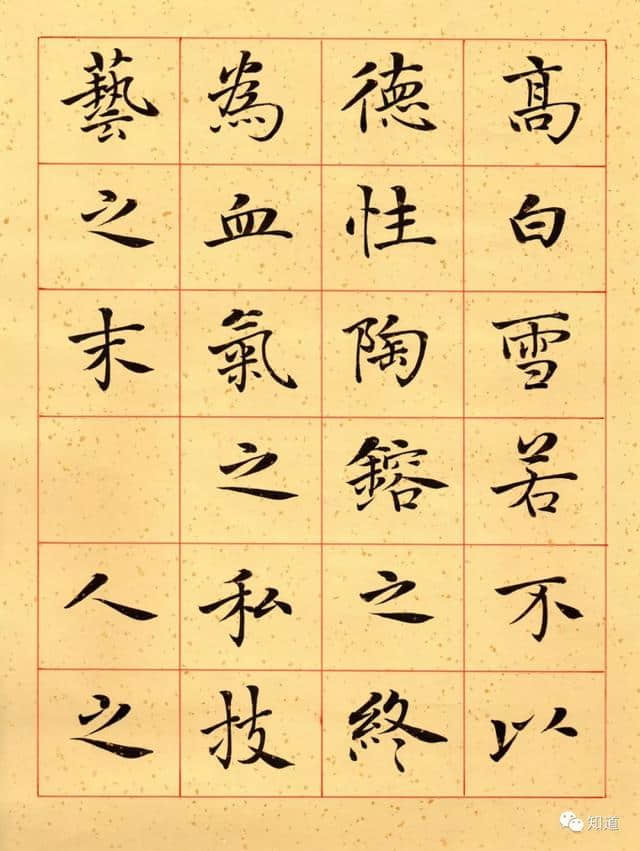 高白雪若不以
德性陶鎔之終
為血氣之私技
藝之末 人之
知道